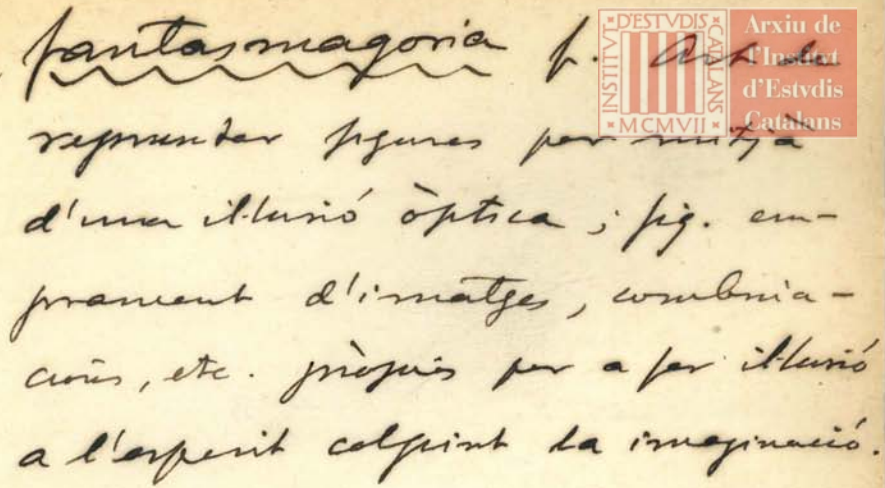 fantasmagoria f. Art de
representar figures per mitjà
d'una il·lusió òptica; fig. em-
prament d'imatges, combina-
cions, etc. pròpies per a fer il·lusió
a l'esperit colpint la imaginació.
INSTITVT D'ESTVDIS CATALANS
MCMVII
Arxiu de
l'Institvt
d'Estvdis
Catalans